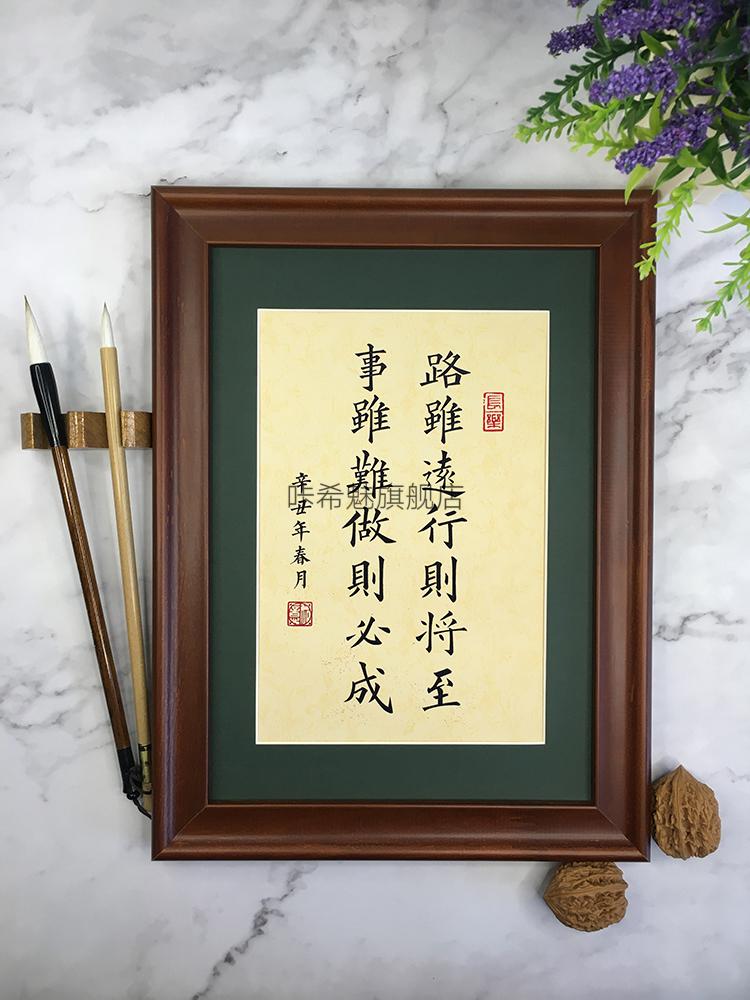 長樂
路雖遠行則将至
事雖難做則必成
辛丑年春月
咔希魅旗舰店